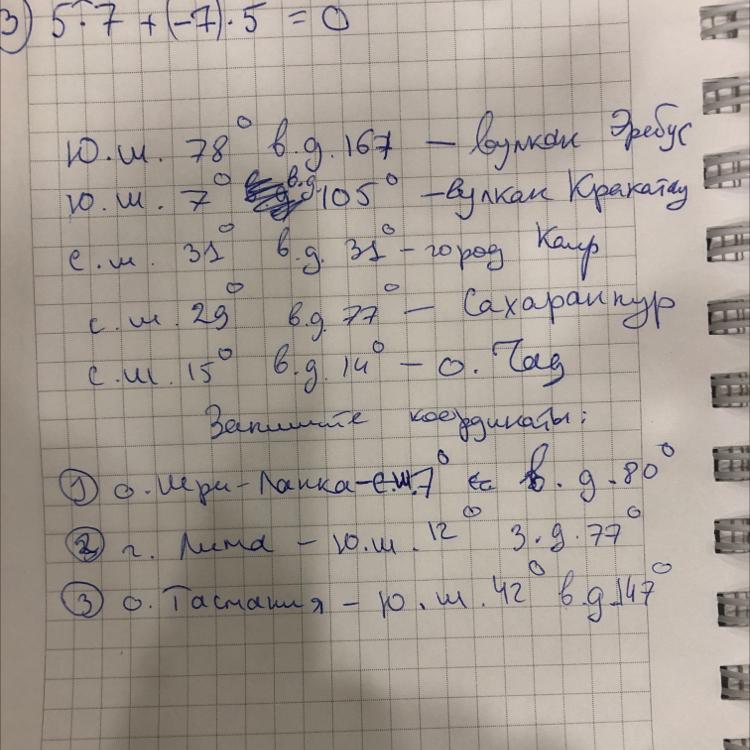 3) 5·7 + (-7)·5 = 0
Ю.ш. 78° в.д. 167 — вулкан Эребус
Ю.ш. 7° в.д. 105° — вулкан Кракатау
с.ш. 31° в.д. 31° - город Каир
с.ш. 29° в.д. 77° — Сахаранпур
с.ш. 15° в.д. 14° — о. Чад
Запишите координаты:
① о. Шри-Ланка - с.ш. 7° в.д. 80°
② г. Лима - Ю.ш. 12° з.д. 77°
③ о. Тасмания - Ю.ш. 42° в.д. 147°